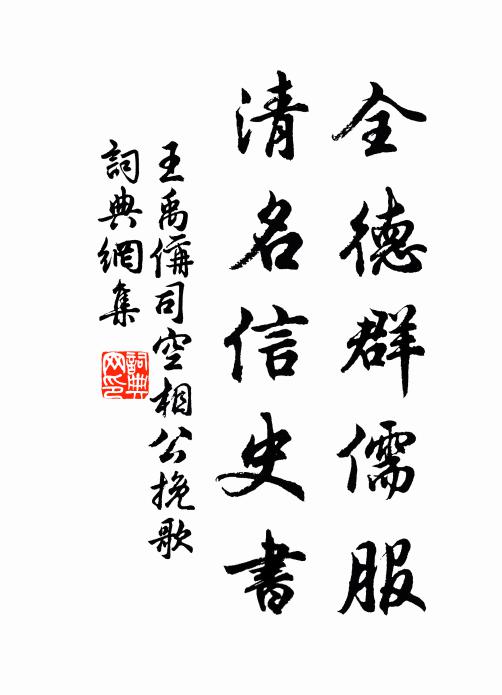 全德群儒服
清名信史書
王禹偁司空相公挽歌
詞典網集
詞典网印